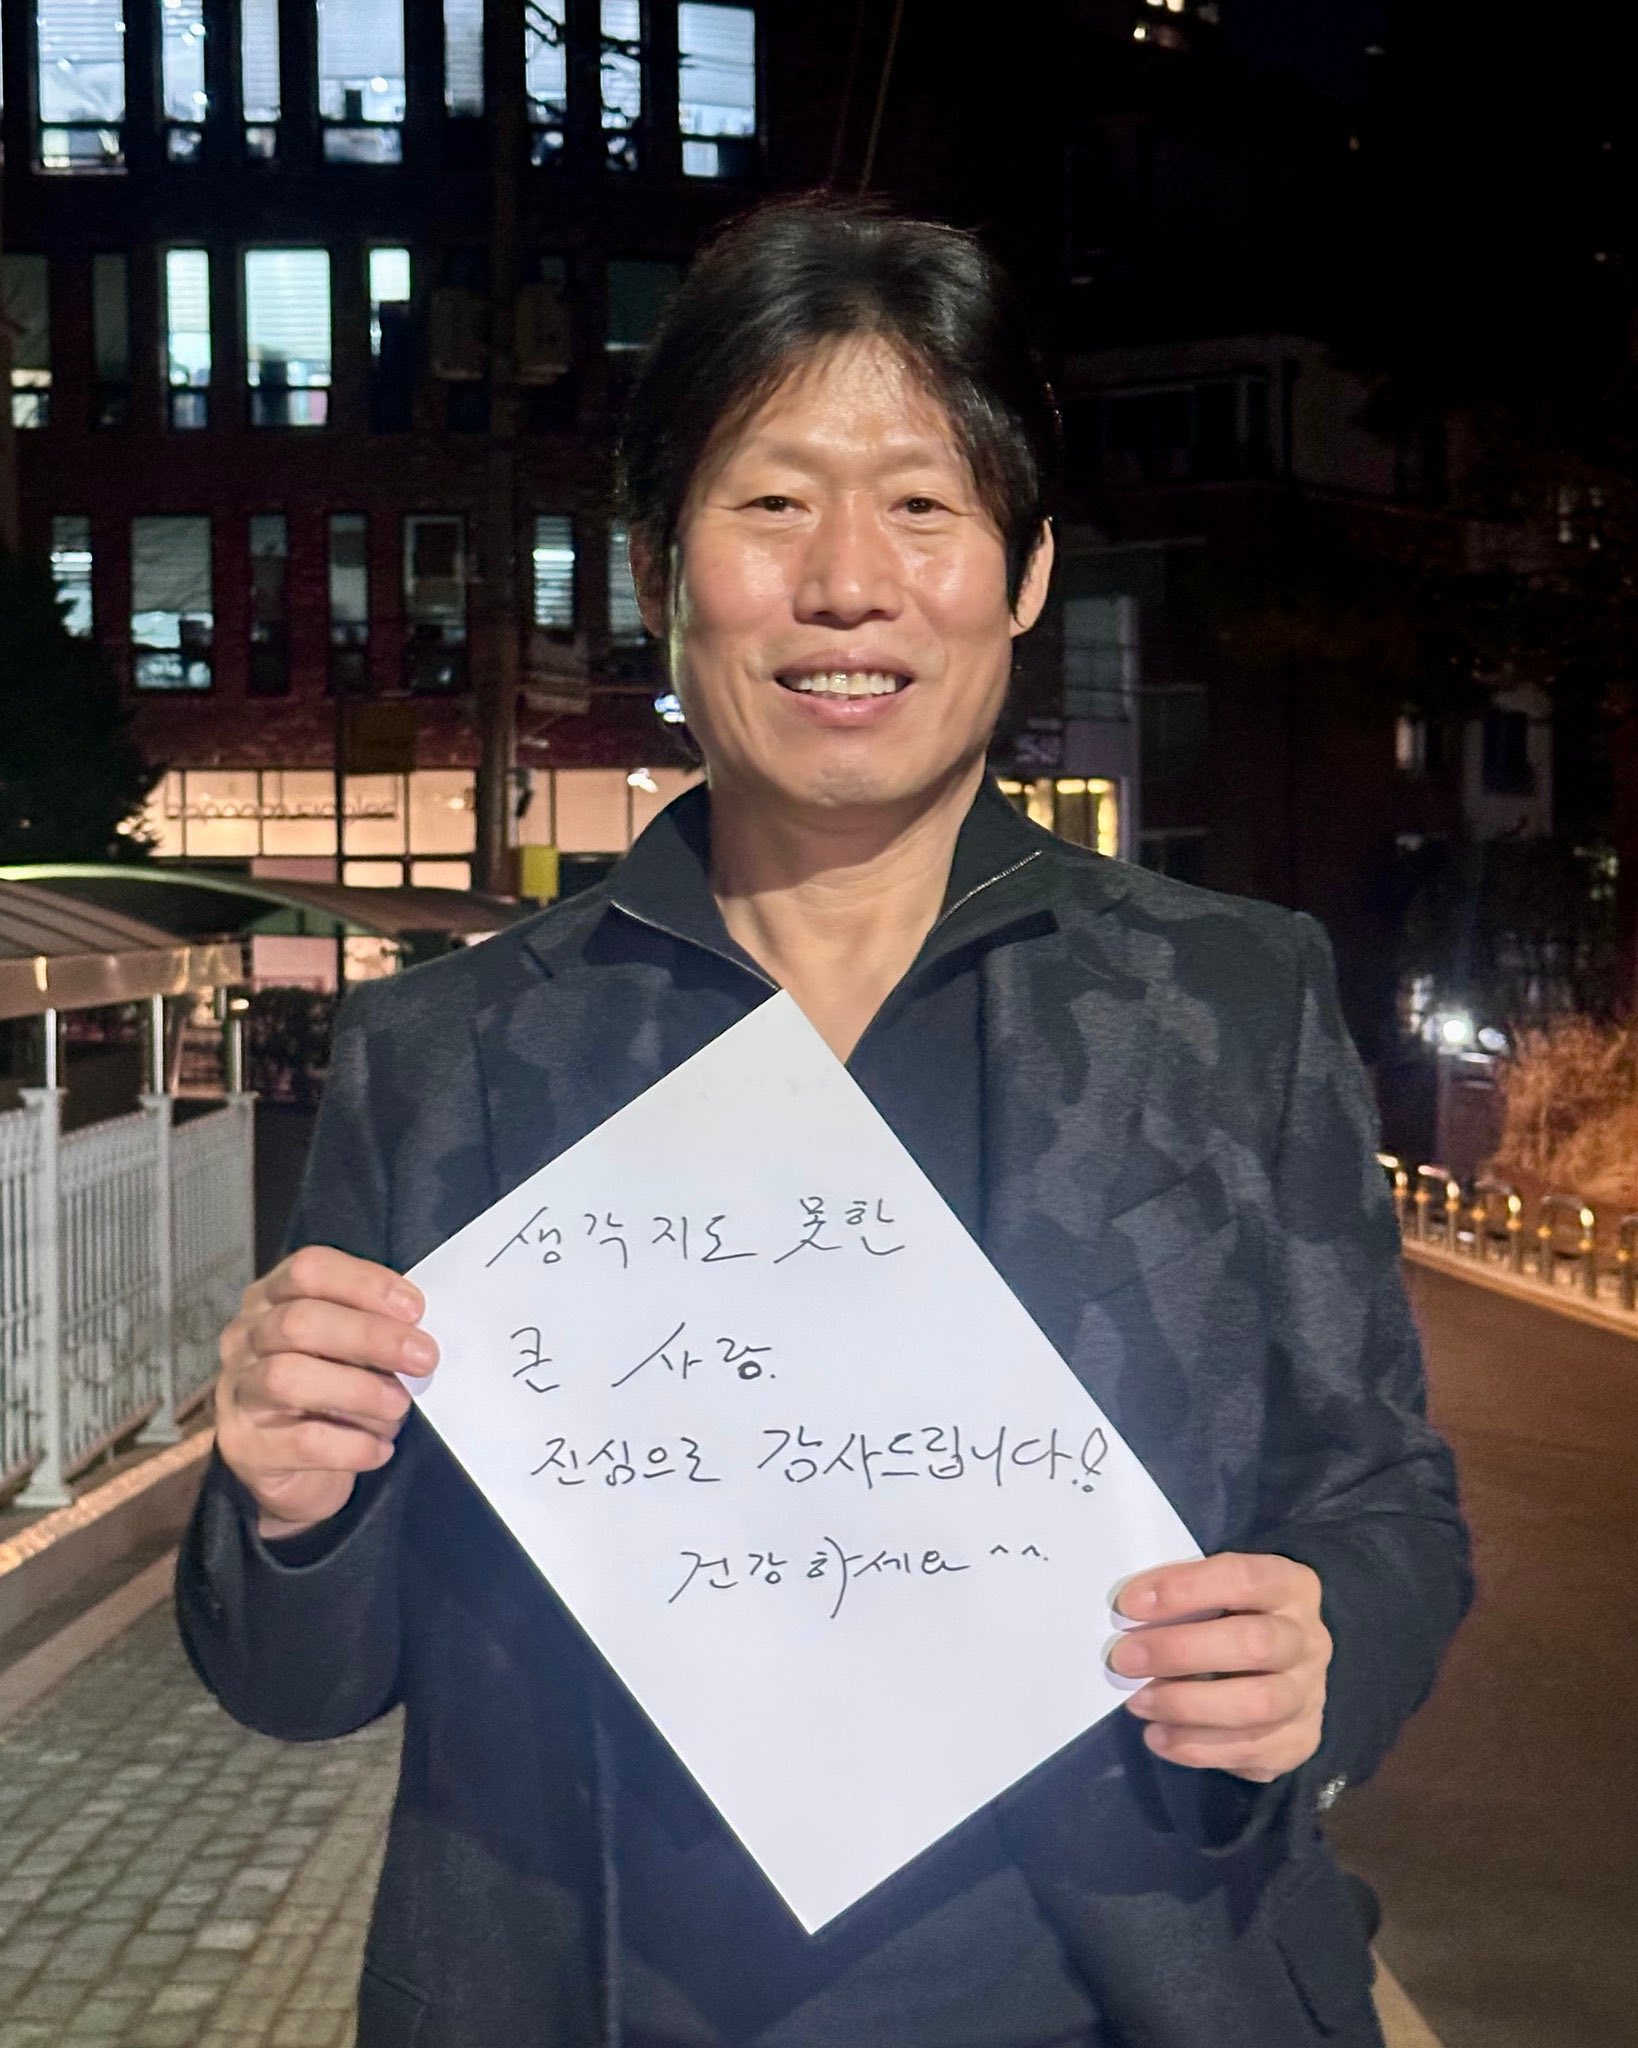 생각지도 못한
큰 사랑.
진심으로 감사드립니다!
건강하세요^^.